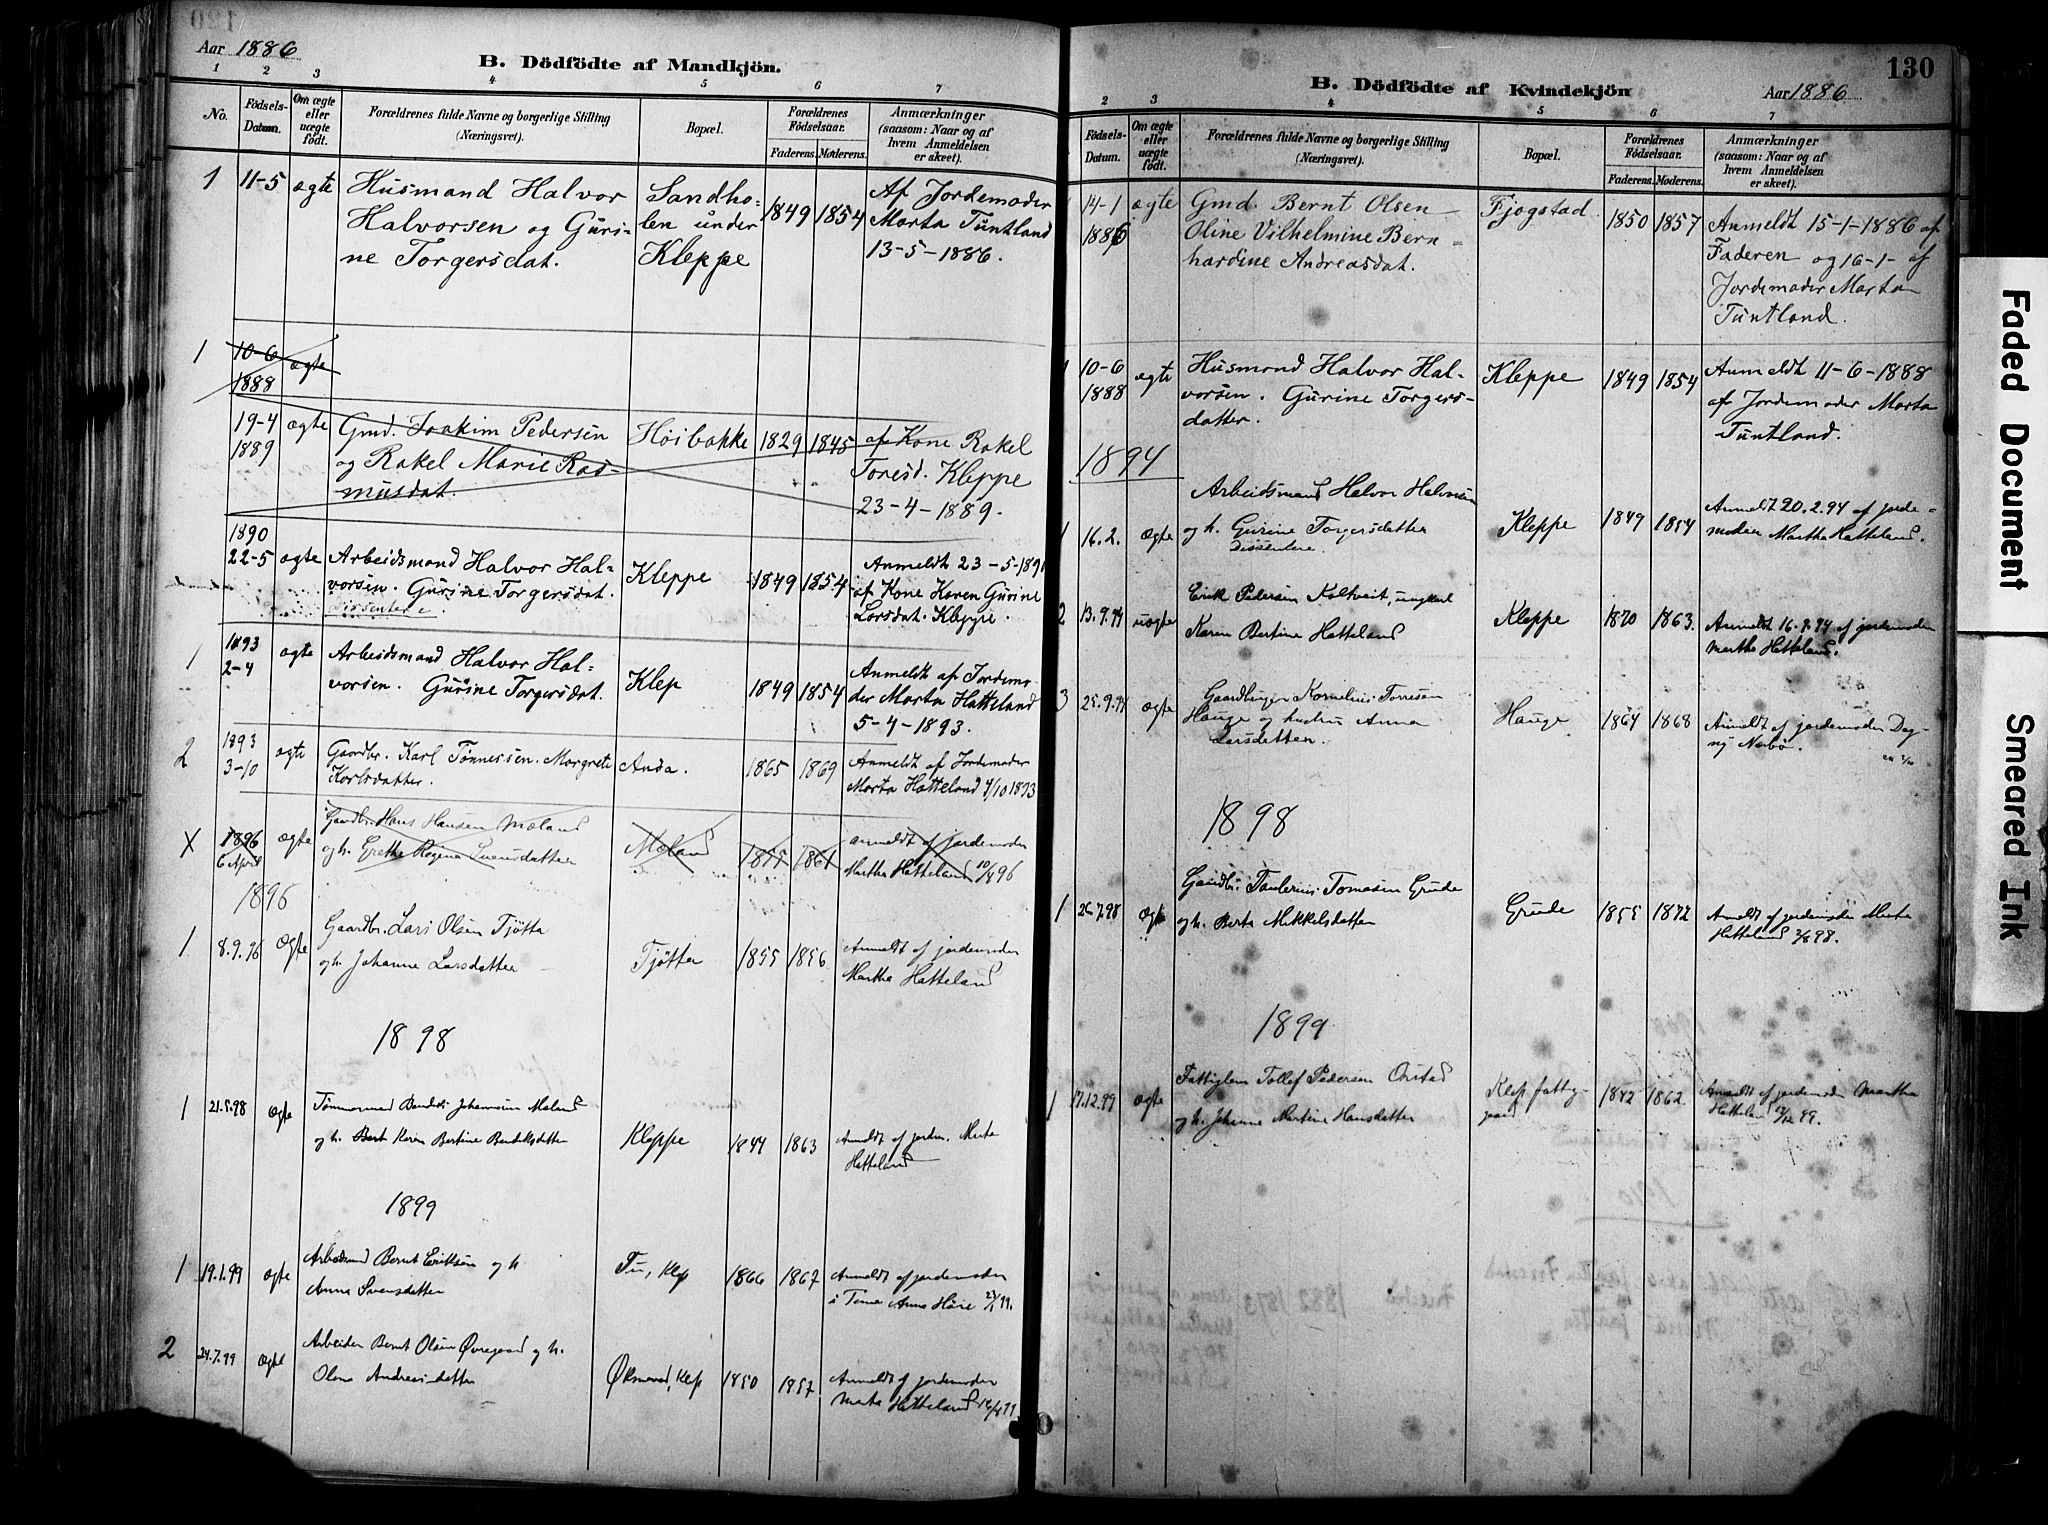 Aar 1886
B. Dödfödte af Mandkjön.
1 2 3 4 5 6 7
No.
Födsels-Datum.
Om ægte eller uægte födt.
Forældrenes fulde Navne og borgerlige Stilling (Næringsvei).
Bopæl.
Forældrenes Födselsaar.
Faderens. Moderens.
Anmærkninger (saasom: Naar og af hvem Anmeldelsen er skeet).
1 11-5 ægte Husmand Halvor Sandho- 1849 1854 Af Jordemoder
Halvorsen og Guri- len under Marta Tuntland
ne Torgersdat. Kleppe 13-5-1886.
1 10-6 ægte
1888
19-4 ægte Gmd. Joakim Pedersen Höibakke 1829 1845 af Kone Rakel
1889 og Rakel Marie Ras- Toresd. Kleppe
musdat. 23-4-1889.
1890
22-5 ægte Arbeidsmand Halvor Hal- Kleppe 1849 1854 Anmeldt 23-5-1890
vorsen. Gurine Torgersdat. af Kone Karen Gurine
Dissentere. Larsdat. Kleppe.
1 1893 ægte Arbeidsmand Halvor Hal- Klep 1849 1854 Anmeldt af Jordemo-
2-4 vorsen. Gurine Torgersdat. der Marta Hatteland
5-4-1893.
2 1893 ægte Gaardbr. Karl Tønnessen. Margrete Anda. 1865 1869 Anmeldt af Jordemoder
3-10 Karlsdatter. Marta Hatteland 4/10 1893
X 1896 ægte Gaardbr. Hans Hansen Mæland Mæland 1855 1861 anmeldt af jordemoder
6 April og h. Grethe Regina Svensdatter Martha Hatteland 10/4 96
1896
1 8.9.96 Ægte Gaardbr. Lars Olsen Tjøtta Tjøtta 1855 1856 Anmeldt af jordemoder
og h. Johanne Larsdatter Martha Hatteland
1898
1 21.5.98 Ægte Tømmermand Johannesen Mæland Kleppe 1844 1863 Anmeldt af jordm. Marta
og h. Bert Karen Bertine Bendiksdatter Hatteland
1899
1 19.1.99 ægte Arbeidsmand Bernt Eriksen og h. Tu, Klep 1866 1867 Anmeldt af jordemoder
Anna Svensdatter i Time Anna 23/1 99.
2 24.7.99 ægte Arbeider Bernt Olsen og h. Øksnevad, Klep 1850 1857 Anmeldt af jordemoder
Olene Andreasdatter Marta Hatteland
130
B. Dödfödte af Kvindekjön
Aar 1886
2 3 4 5 6 7
Födsels-Datum.
Om ægte eller uægte födt.
Forældrenes fulde Navne og borgerlige Stilling (Næringsvei).
Bopæl.
Forældrenes Födselsaar.
Faderens. Moderens.
Anmærkninger (saasom: Naar og af hvem Anmeldelsen er skeet).
14-1 ægte Gmd. Bernt Olsen Fjogstad. 1850 1857 Anmeldt 15-1-1886 af
1886 Oline Vilhelmine Bern- Faderen og 16-1- af
hardine Andreasdat. Jordemoder Marta
Tuntland.
10-6 ægte Husmand Halvor Hal- Kleppe 1849 1854 Anmeldt 11-6-1888
1888 vorsen. Gurine Torgers- af Jordemoder Marta
datter. Tuntland.
1894
1 16.2. ægte Arbeidsmand Halvor Halvorsen Kleppe 1849 1854 Anmeldt 20.2.94 af jorde-
og h. Gurine Torgersdatter moder Martha Hatteland.
Dissentere.
2 13.9.94 uægte Erik Pedersen Koltveit, ungkarl Kleppe 1870 1863. Anmeldt 16.9.94 af jordemoder
Karen Bertine Hatteland Martha Hatteland.
3 25.9.94 ægte Gaardbruger Kornelius Torresen Hauge 1864 1868 Anmeldt af jordemoder Dag-
Hauge og hustru Anna ny Nærbø.
Larsdatter.
1898
1 26.7.98 Ægte Gaardbr. Tomasen Grude Grude 1855 1872 Anmeldt af jordemoder Marta
og h. Berta Mikkelsdatter Hatteland 2/8 98.
1899
1 17.12.99 ægte Fattiglem Tollef Pedersen Orstad Klep fattig- 1842 1862. Anmeldt af jordemoder Martha
og h. Johanne Martine Hansdatter gaard Hatteland /12 99.
Faded Document
Smeared Ink